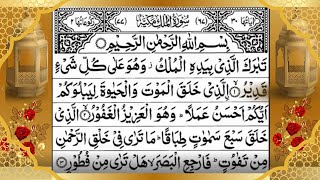 آياتها ٣٠ (٦٧) سُورَةُ الْمُلْكِ مَكِّيَّةٌ (٧٧) رکوعاتها ٢
بِسْمِ اللهِ الرَّحْمٰنِ الرَّحِيْمِ
تَبٰرَكَ الَّذِيْ بِيَدِهِ الْمُلْكُ ۖ وَهُوَ عَلٰى كُلِّ شَيْءٍ
قَدِيْرُ ۙ الَّذِيْ خَلَقَ الْمَوْتَ وَالْحَيٰوةَ لِيَبْلُوَكُمْ
اَيُّكُمْ اَحْسَنُ عَمَلًا ؕ وَهُوَ الْعَزِيْزُ الْغَفُوْرُ ۙ الَّذِيْ
خَلَقَ سَبْعَ سَمٰوٰتٍ طِبَاقًا ؕ مَا تَرٰى فِيْ خَلْقِ الرَّحْمٰنِ
مِنْ تَفٰوُتٍ ؕ فَارْجِعِ الْبَصَرَ ۙ هَلْ تَرٰى مِنْ فُطُوْرٍ